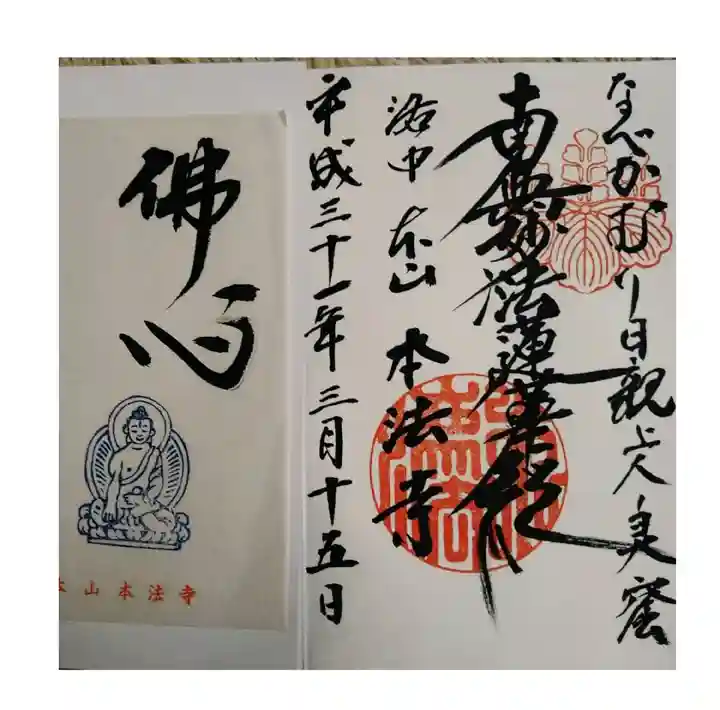 なべかむり日親上人霊窟
南無妙法蓮華経
洛中 本山 本法寺
平成三十一年三月十五日
佛心
本山本法寺